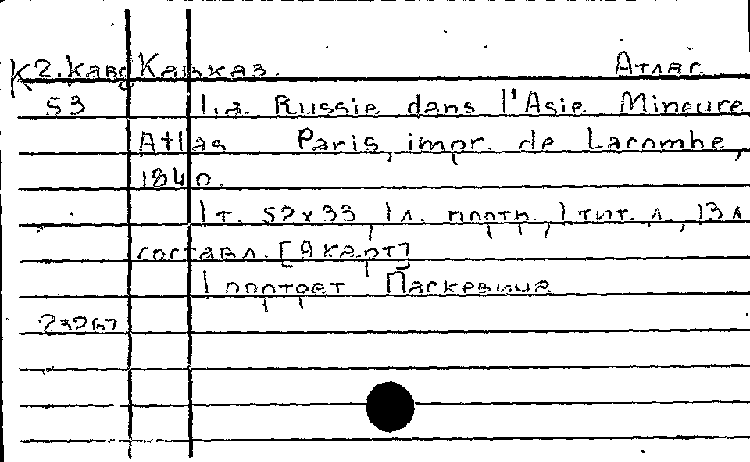 К2.Кавк Кавказ. Атлас
53 La Russie dans l'Asie Mineure
Atlas Paris, impr. de Lacombe,
1840.
1 т. 52x33, 1 л. портр., 1 тит. л., 13 л
составл. [9 карт]
1 портрет Паскевича